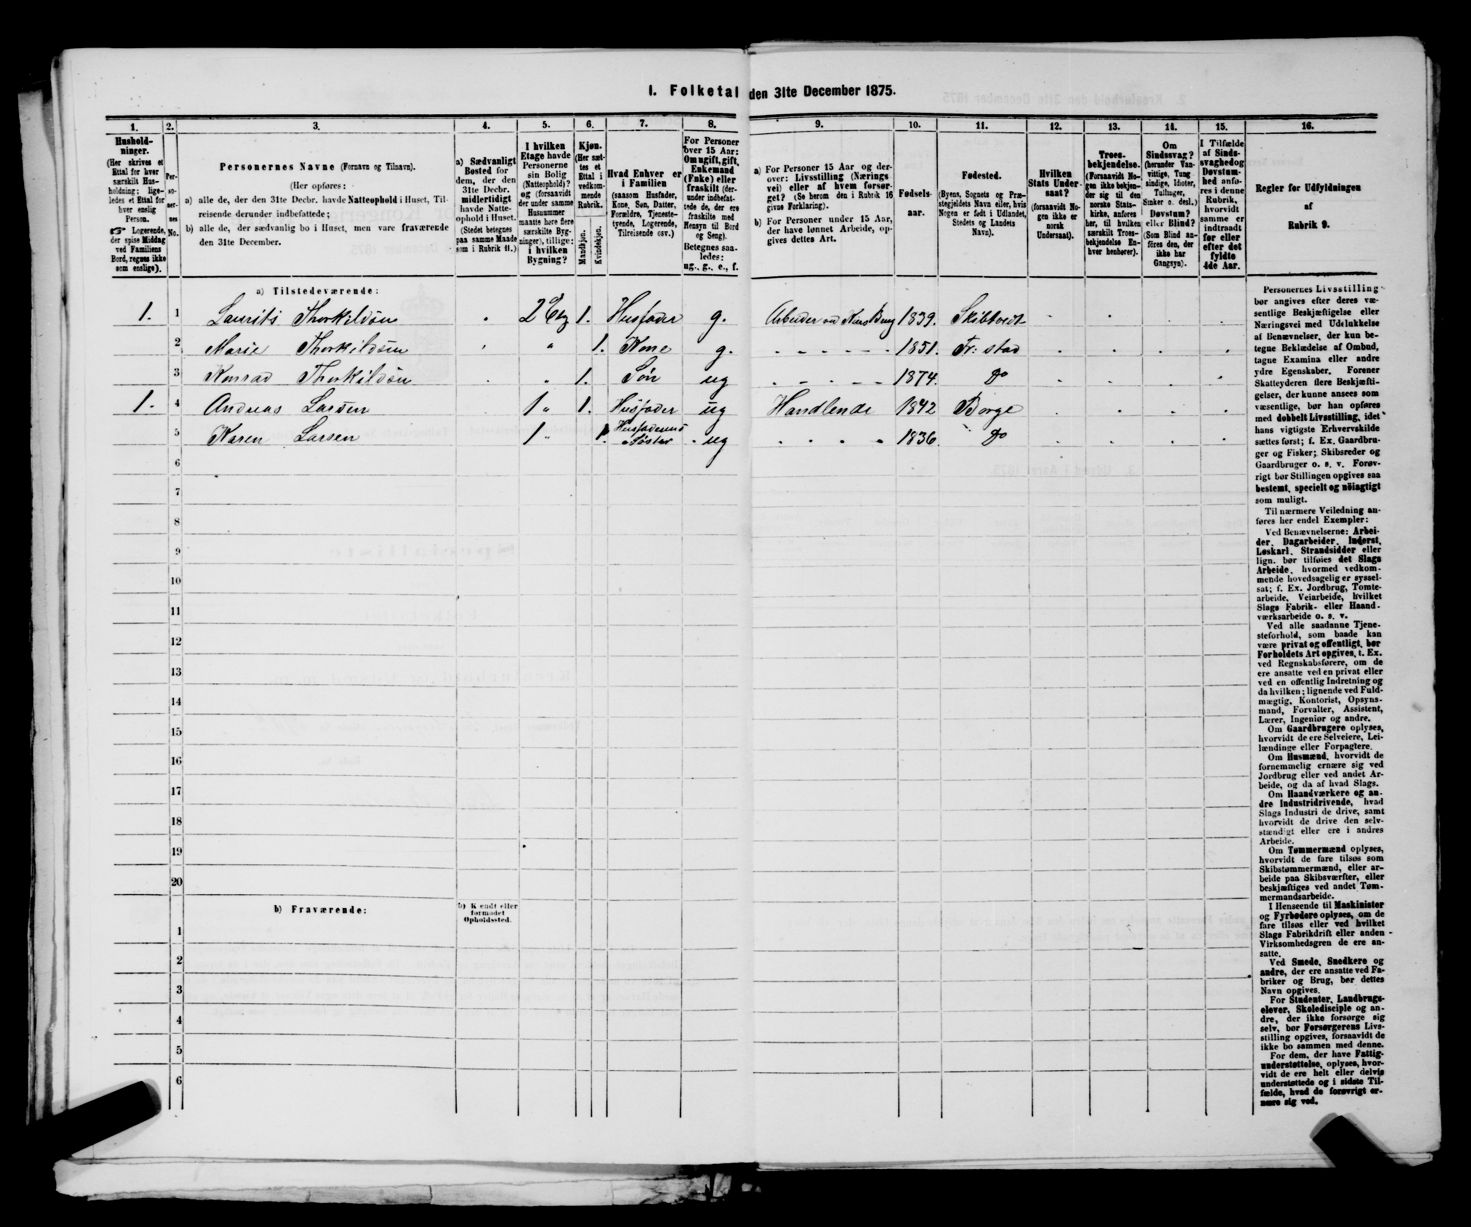 1. Folketal den 31te December 1875.
1. 2. 3. 4. 5. 6. 7. 8. 9. 10. 11. 12. 13. 14. 15. 16.
Hushold-
ninger.
(Her skrives et
Ettal for hver
særskilt Hus-
holdning; lige-
ledes et Ettal for
hver enslig
Person.
☞ Logerende,
der spise Middag
ved Familiens
Bord, regnes ikke
som enslige).
Per-
so-
ner-
nes
No.
Personernes Navne (Fornavn og Tilnavn).
(Her opføres:
a) alle de, der den 31te Decbr. havde Natteophold i Huset, Til-
reisende derunder indbefattede;
b) alle de, der sædvanlig bo i Huset, men vare fraværende
den 31te December.
a) Sædvanligt
Bosted for
dem, der den
31te Decbr.
midlertidigt
havde Natte-
ophold i Huset.
(Stedet betegnes
paa samme Maade
som i Rubrik 11.)
I hvilken
Etage havde
Personerne
sin Bolig
(Natteophold)?
og (forsaavidt
der under samme
Husnummer
maatte høre flere
særskilte Byg-
ninger), tillige:
i hvilken
Bygning?
Kjøn.
(Her sæt-
tes et
Ettal i
vedkom-
mende
Rubrik.)
Mandkjøn.
Kvindekjøn.
Hvad Enhver er
i Familien
(saasom Husfader,
Kone, Søn, Datter,
Forældre, Tjeneste-
tyende, Logerende,
Tilreisende osv.)
For Personer
over 15 Aar:
Om ugift, gift,
Enkemand
(Enke) eller
fraskilt (der-
under indbefat-
tede de, der ere
fraskilte med
Hensyn til Bord
og Seng).
Betegnes saa-
ledes:
ug., g., e., f.
a) For Personer 15 Aar og der-
over: Livsstilling (Nærings
vei) eller af hvem forsør-
get? (Se herom den i Rubrik 16
givne Forklaring).
b) For Personer under 15 Aar,
der have lønnet Arbeide, op-
gives dettes Art.
Fødsels-
aar.
Fødested.
(Byens, Sognets og Præ-
stegjeldets Navn eller, hvis
Nogen er født i Udlandet,
Stedets og Landets
Navn).
Hvilken
Stats Under-
saat?
(forsaavidt No-
gen ikke er
norsk
Undersaat).
Troes-
bekjendelse.
(Forsaavidt No-
gen ikke bekjen-
der sig til den
norske Stats-
kirke, anføres
her, til hvilken
særskilt Troes-
bekjendelse En-
hver henhører).
Om
Sindssvag?
(herunder Van-
vittige, Tung
sindige, Idioter,
Tullinger,
Sinker o. desl.)
Døvstum?
eller Blind?
(Som Blind an-
føres den, der
ikke har
Gangsyn).
I Tilfælde
af Sinds-
svaghed og
Døvstum-
hed anfø-
res i denne
Rubrik,
hvorvidt
samme er
indtraadt
før eller
efter det
fyldte
4de Aar.
Regler for Udfyldningen
af
Rubrik 9.
a) Tilstedeværende:
1. 1 Laurits Thorkildsen 2 Etg 1. Husfader g. Arbeider ved 1839. Skibtvedt
2 Marie Thorkildsen " 1. Kone g. 1851. Fr: stad
3 Konrad Thorkildsen " 1. Søn ug 1874. Do
1. 4 Andreas Larsen 1 " 1. Husfader ug Handlende 1842 Borge
5 Karen Larsen 1 " 1. Husfaderens Søster ug 1836. Do
6
7
8
9
10
11
12
13
14
15
16
17
18
19
20
b) Fraværende:
b) Kjendt eller
formodet
Opholdssted.
1
2
3
4
5
6
Personernes Livsstilling
bør angives efter deres væ-
sentlige Beskjæftigelse eller
Næringsvei med Udelukkelse
af Benævnelser, der kun be-
tegne Beklædelse af Ombud,
tagne Examina eller andre
ydre Egenskaber. Forener
Skatteyderen flere Beskjæfti-
gelser, der kunne ansees som
væsentlige, bør han opføres
med dobbelt Livsstilling, idet
hans vigtigste Erhvervskilde
sættes først; f. Ex. Gaardbru-
ger og Fisker; Skibsreder og
Gaardbruger o. s. v. Forøv-
rigt bør Stillingen opgives saa
bestemt, specielt og nøiagtigt
som muligt.
Til nærmere Veiledning an-
føres her endel Exempler:
Ved Benævnelserne: Arbei-
der, Dagarbeider, Inderst,
Løskarl, Strandsidder eller
lign. bør tilføies det Slags
Arbeide, hvormed vedkom-
mende hovedsagelig er syssel-
sat; f. Ex. Jordbrug, Tomte-
arbeide, Veiarbeide, hvilket
Slags Fabrik- eller Haand-
værksarbeide o. s. v.
Ved alle saadanne Tjene-
steforhold, som baade kan
være privat og offentligt, bør
Forholdets Art opgives, t. Ex.
ved Regnskabsførere, om de
ere ansatte ved en privat eller
ved en offentlig Indretning og
da hvilken; lignende ved Fuld-
mægtig, Kontorist, Opsyns-
mand, Forvalter, Assistent,
Lærer, Ingeniør og andre.
Om Gaardbrugere oplyses,
hvorvidt de ere Selveiere, Lei-
lændinge eller Forpagtere.
Om Husmænd, hvorvidt de
fornemmelig ernære sig ved
Jordbrug eller ved andet Ar-
beide, og da af hvad Slags.
Om Haandværkere og an-
dre Industridrivende, hvad
Slags Industri de drive, samt
hvorvidt de drive den selv-
stændigt eller ere i andres
Arbeide.
Om Tømmermænd oplyses,
hvorvidt de fare tilsøs som
Skibstømmermænd, eller ar-
beide paa Skibsværfter, eller
beskjæftiges ved andet Tøm-
mermandsarbeide.
I Henseende til Maskinister
og Fyrbødere oplyses, om de
fare tilsøs eller ved hvilket
Slags Fabrikdrift eller anden
Virksomhedsgren de ere an-
satte.
Ved Smede, Snedkere og
andre, der ere ansatte ved Fa-
briker og Brug, bør dettes
Navn opgives.
For Studenter, Landbrugs-
elever, Skoledisciple og an-
dre, der ikke forsørge sig
selv, bør Forsørgerens Livs-
stilling opgives, forsaavidt de
ikke bo sammen med denne.
For dem, der have Fattig-
understøttelse, oplyses, hvor-
vidt de ere helt eller delvis
understøttede og i sidste Til-
fælde, hvad de forøvrigt er-
nære sig ved.